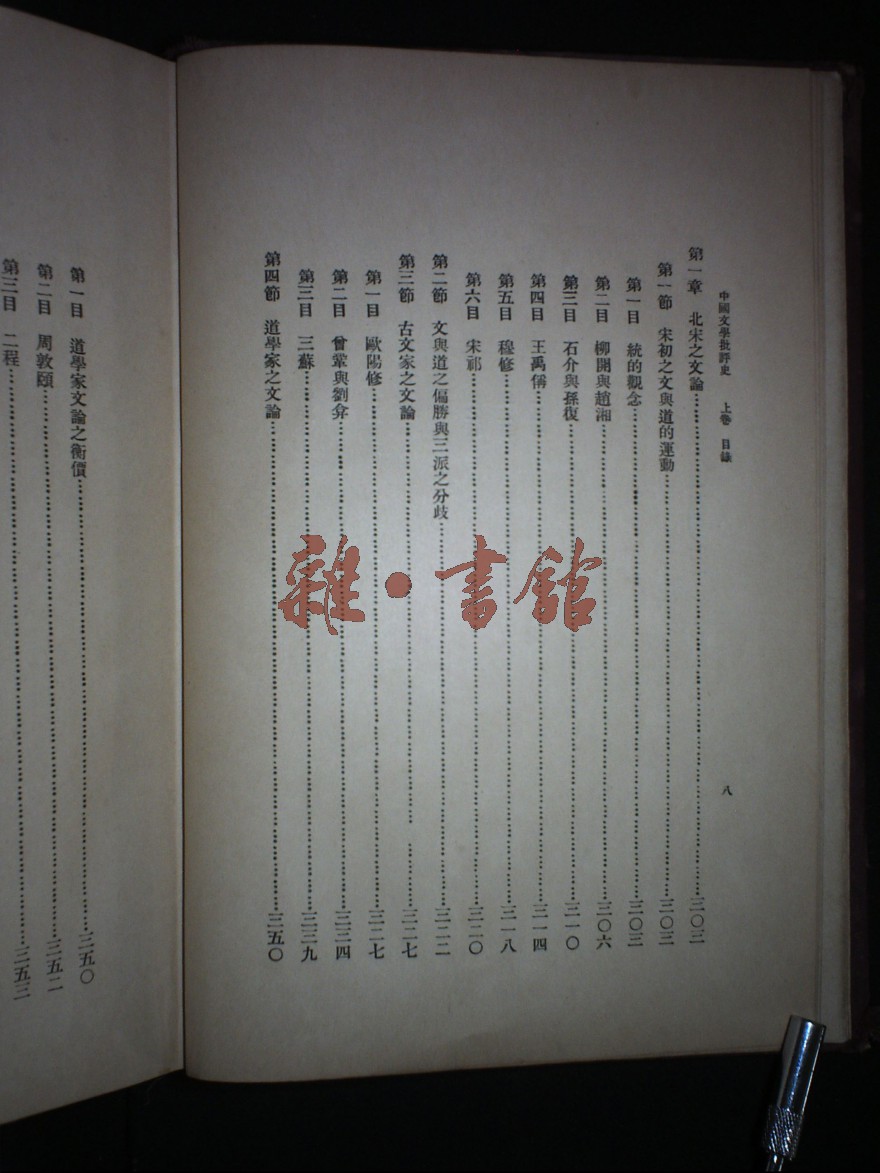 中國文學批評史　上卷　目錄　八
第一章　北宋之文論……三〇三
第一節　宋初之文與道的運動……三〇三
第一目　統的觀念……三〇三
第二目　柳開與趙湘……三〇六
第三目　石介與孫復……三一〇
第四目　王禹偁……三一四
第五目　穆修……三一八
第六目　宋祁……三二〇
第二節　文與道之偏勝與三派之分歧……三二二
第三節　古文家之文論……三二七
第一目　歐陽修……三二七
第二目　曾鞏與劉弇……三三四
第三目　三蘇……三三九
第四節　道學家之文論……三五〇
第一目　道學家文論之衡價……三五〇
第二目　周敦頤……三五二
第三目　二程……三五三
雜・書館